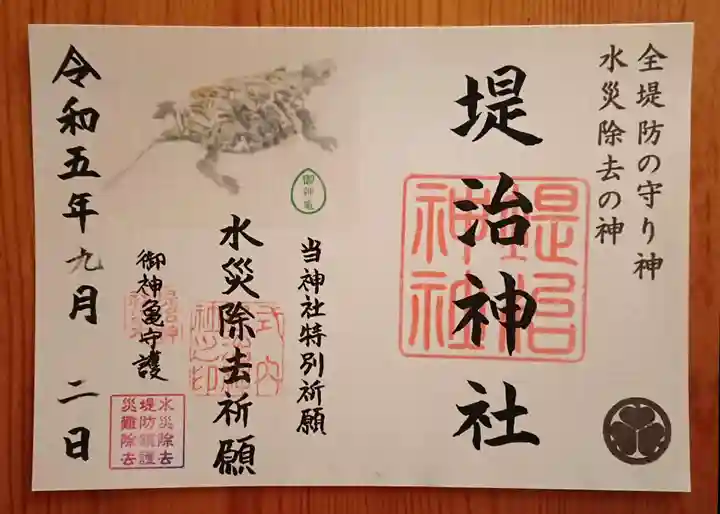 全堤防の守り神
水災除去の神
堤治神社
堤治
神社
当神社特別祈願
水災除去祈願
式内
御神亀
御神亀守護
水災除去
堤防鎮護
災難除去
令和五年九月二日